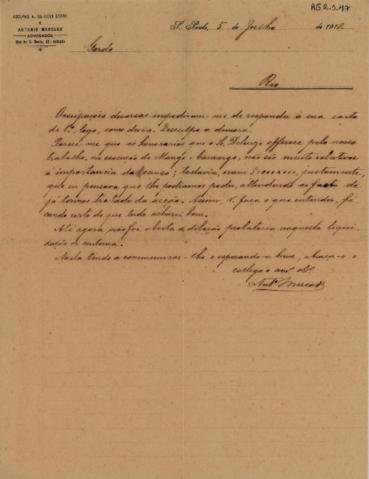 AG 2.3.47
ADOLPHO A. DA SILVA GORDO
E
ANTONIO MERCADO
ADVOGADOS
S. Paulo, 5 de Julho de 1912.
Gordo
Rio
Occupações diversas impediram-me de responder á sua carta
de 1º logo, como devia. Desculpe a demora.
Parece-me que os honorarios que o Sr. offerece pelo nosso
trabalho, na rescisão de não são muito relativos
á importancia da causa; todavia, eram justamente,
que eu pensava que lhe podiamos pedir, attendendo ao facto de
já termos tratado da acção. Assim, V. faça o que entender, fi-
cando certo de que tudo acharei bom.
Até agora não foi aberta a dilação probatoria naquella liqui-
dação de sentença.
Nada tendo a communicar-lhe e esperando-o breve, abraça-o o
collega e amº obrº
Antº Mercado